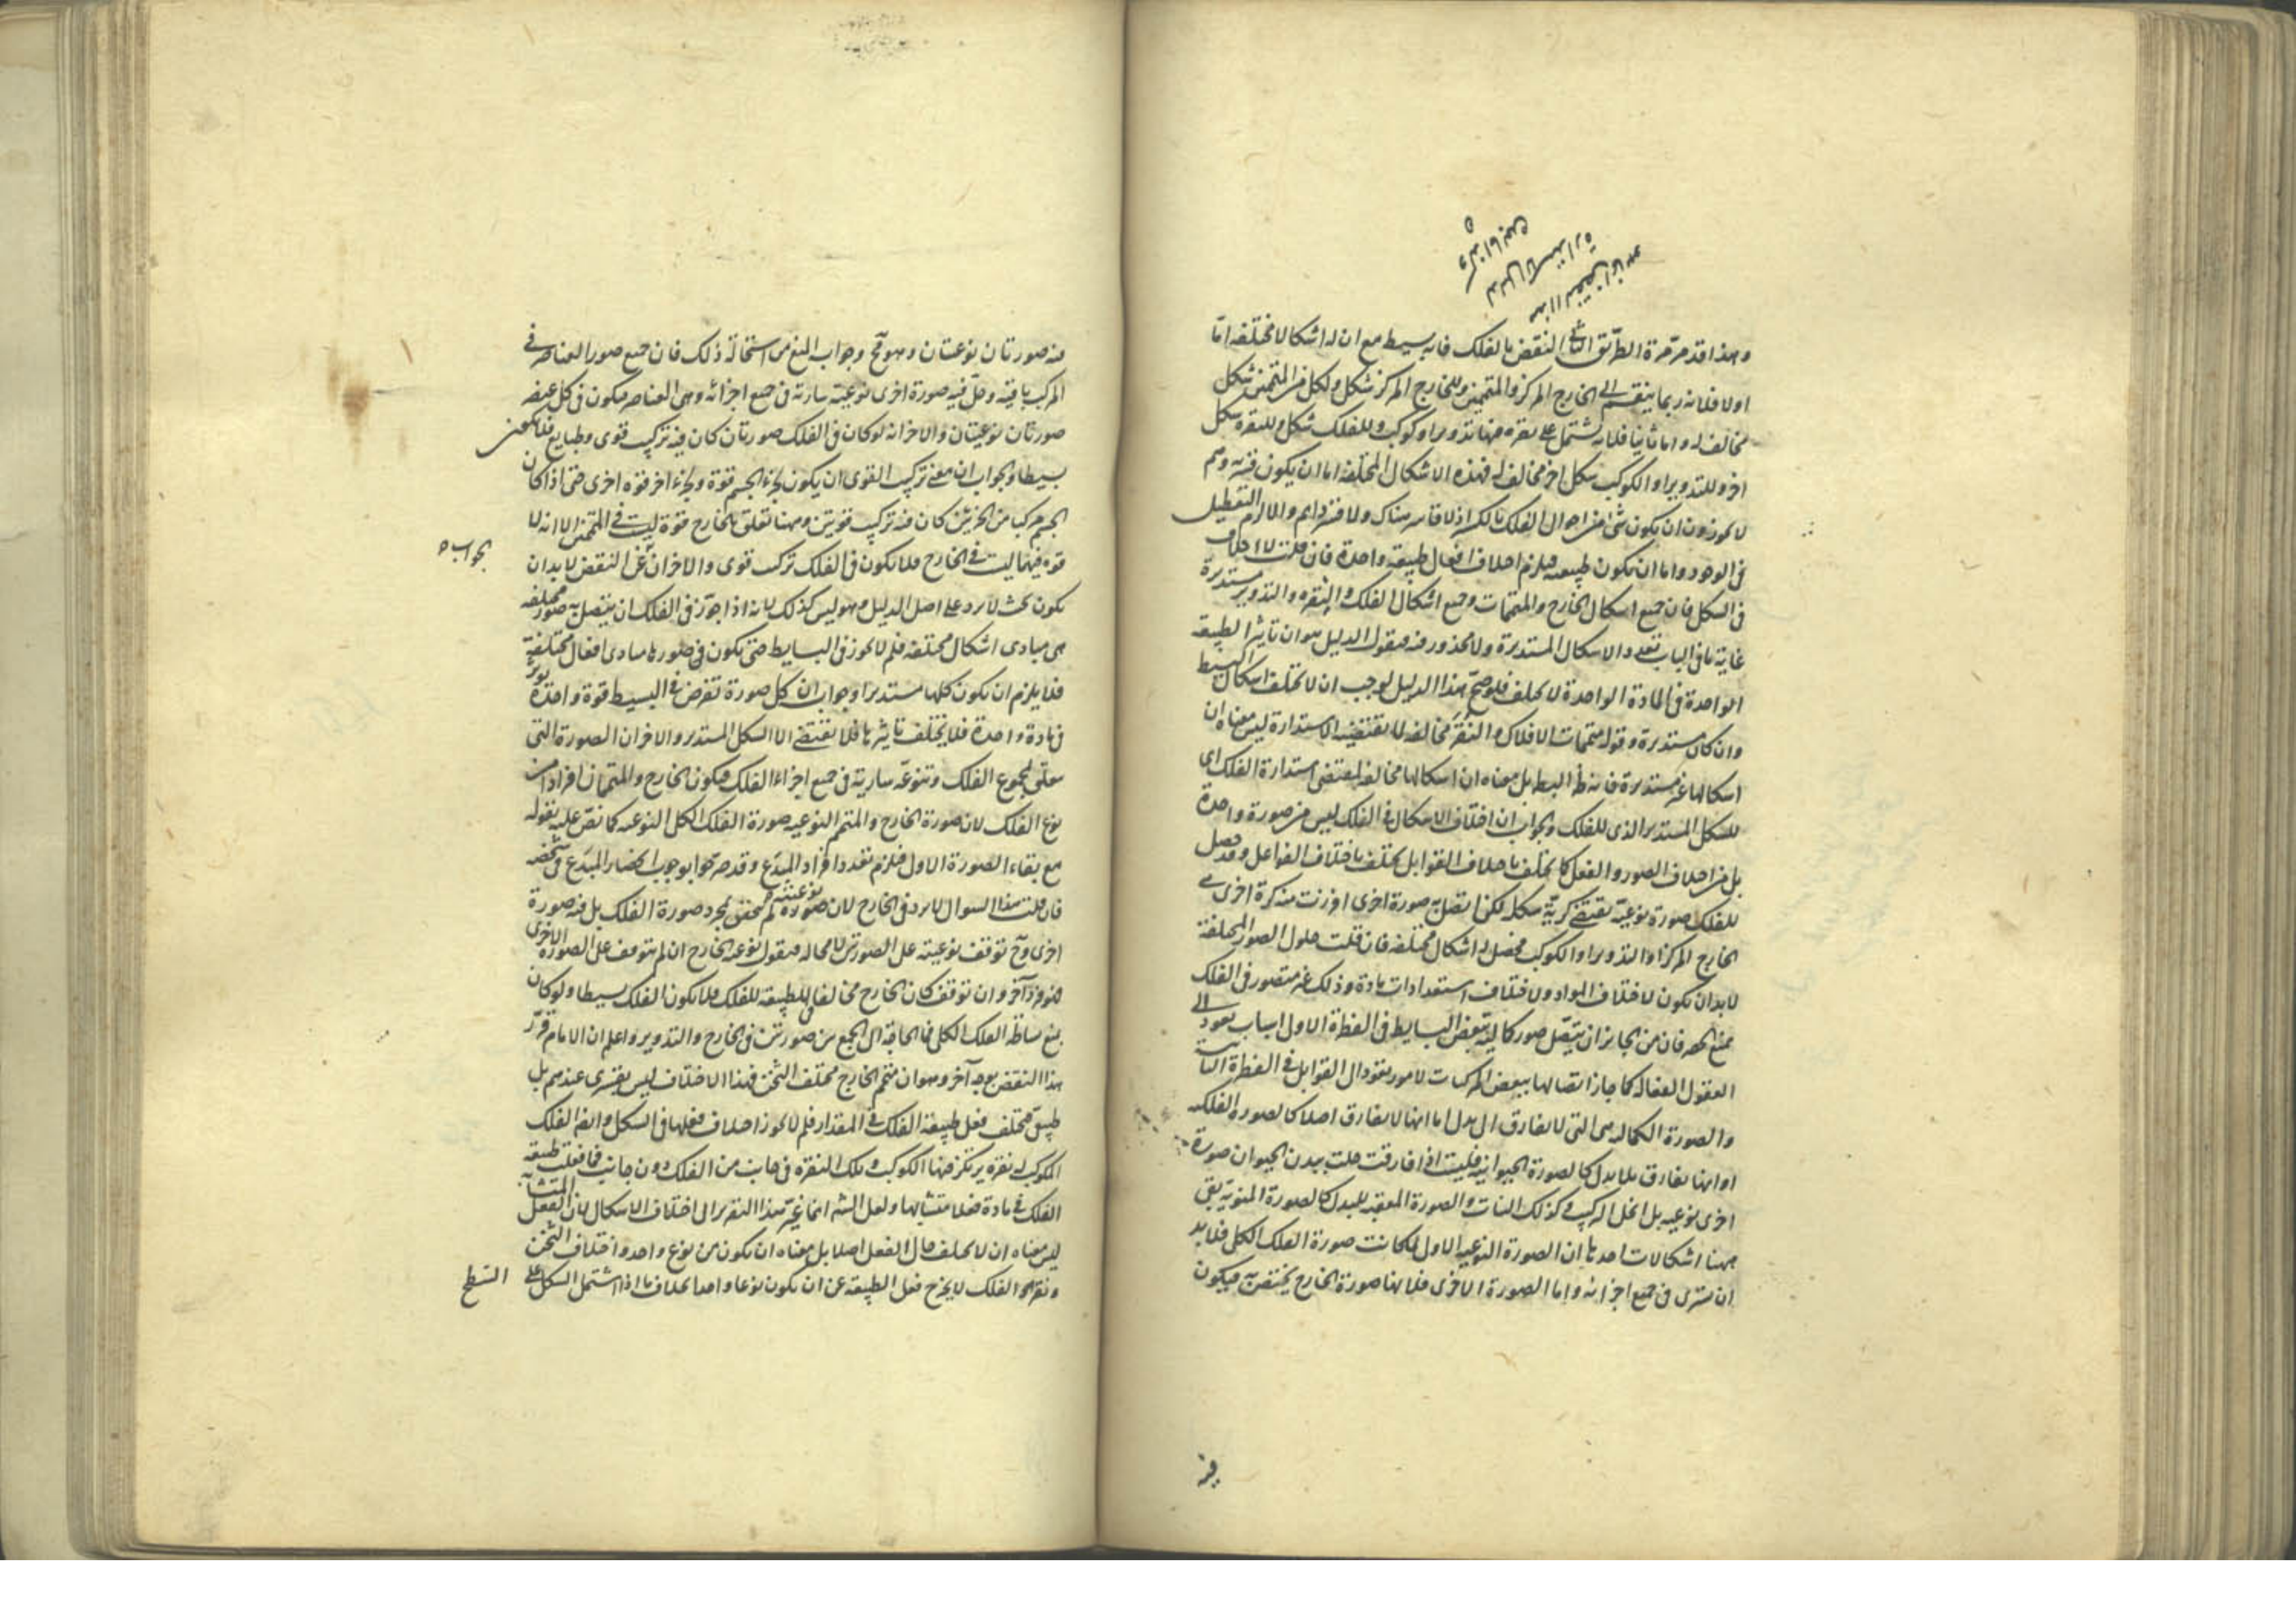 وهذا قد مر مرة الطريق الثانى النقض بالفلك فانه بسيط مع ان له اشكالا مختلفة اما
اولا فلانه ربما ينقسم الى الخارج المركز والمتممين وللخارج المركز شكل ولكل من المتممين شكل
مخالف له واما ثانيا فلانه يشتمل على نقرة فيها تدوير او كوكب وللفلك شكل وللنقرة شكل
اخر وللتدوير او الكوكب شكل اخر مخالف له فهذه الاشكال المختلفة اما ان يكون قسرية وهم
لا يجوزون ان يكون شئ من احوال الفلك بالقسر اذ لا قاسر هناك ولا قسر دايم والا لزم التعطيل
فى الوجود واما ان يكون طبيعية فيلزم اختلاف افعال طبيعة واحدة فان قلت لا اختلاف
فى الشكل فان جميع اشكال الخارج والمتممات وجميع اشكال الفلك والنقرة والتدوير مستديرة
غاية ما فى الباب تعدد الاشكال المستديرة ولا محذور فيه فنقول الدليل هو ان تاثير الطبيعة
الواحدة فى المادة الواحدة لا يختلف فلو صح هذا الدليل لوجب ان لا يختلف اشكال البسيط
وان كان مستديرة وقوله متممات الافلاك والنقر مخالفة لما تقتضيه الاستدارة ليس معناه ان
اشكالها غير مستديرة فانه ظ البط بل معناه ان اشكالها مخالفة لمقتضى استدارة الفلك اى
للشكل المستدير الذى للفلك والجواب ان اختلاف الاشكال فى الفلك ليس من صورة واحدة
بل من اختلاف الصور والفعل كما يختلف باختلاف القوابل يختلف باختلاف الفواعل وقد حصل
للفلك صورة نوعية تقتضى كرية شكله لكن اتصل به صورة اخرى افرزت منه كرة اخرى هى
الخارج المركز او التدوير او الكوكب فحصل له اشكال مختلفة فان قلت حلول الصور المختلفة
لا بد ان يكون لاختلاف المواد ولاختلاف استعدادات مادة وذلك غير متصور فى الفلك
يمنع الحصر فان من الجايز ان يتصل صور كمالية ببعض البسايط فى الفطرة الاولى لاسباب تعود الى
العقول الفعالة كما جاز اتصالها ببعض المركبات لامور تعود الى القوابل فى الفطرة الثانية
والصورة الكمالية هى التى لا تفارق الى بدل اما انها لا تفارق اصلا كالصورة الفلكية
او انها تفارق بلا بدل كالصورة الحيوانية فليست اذا فارقت حلت ببدن الحيوان صورة
اخرى نوعية بل انحل التركيب وكذلك النبات والصورة المعقبة للبدل كالصورة المنوية بقى
ههنا اشكالات احدها ان الصورة النوعية الاولى لما كانت صورة الفلك الكلى فلا بد
ان تسرى فى جميع اجزائه واما الصورة الاخرى فلانها صورة الخارج يختص به فيكون
فيه
فيه صورتان نوعيتان وهو مح وجوابه المنع من استحالة ذلك فان جميع صور العناصر فى
المركب باقية وحل فيه صورة اخرى نوعية سارية فى جميع اجزائه وهى العناصر فيكون فى كل عنصر
صورتان نوعيتان والاخر انه لو كان فى الفلك صورتان كان فيه تركيب قوى وطبايع فلا يكون
بسيطا والجواب ان معنى تركيب القوى ان يكون لجزء الجسم قوة ولجزء اخر قوة اخرى حتى اذا كان
الجسم مركبا من الجزئين كان فيه تركيب قوتين وههنا تعلق بالخارج قوة ليست فى المتممين الا انه لا
قوة فيهما ليست فى الخارج فلا يكون فى الفلك تركيب قوى والاخر ان عن النقض لا بد ان
الجواب
يكون بحيث لا يرد على اصل الدليل وهو ليس كذلك لانه اذا جوز فى الفلك ان يتصل به صور مختلفة
هى مبادى اشكال مختلفة فلم لا يجوز فى البسايط حتى يكون فى صورها مبادى افعال مختلفة
فلا يلزم ان يكون كلها مستديرا وجوابه ان كل صورة تفرض فى البسيط قوة واحدة تؤثر
فى مادة واحدة فلا يختلف تاثيرها فلا تقتضى الا الشكل المستدير والاخر ان الصورة التى
تتعلق بمجموع الفلك وتنوعه سارية فى جميع اجزاء الفلك فيكون الخارج والمتممان افرادا من
نوع الفلك لان صورة الخارج والمتمم النوعية صورة الفلك الكلى النوعية كما نص عليه بقوله
مع بقاء الصورة الاولى فيلزم تعدد افراد المبدع وقد صرحوا بوجوب انحصار المبدع فى شخصه
فان قلت هذا السوال لا يرد فى الخارج لان صورة نوعيته لم تتحقق بمجرد صورة الفلك بل فيه صورة
اخرى وح توقف نوعيته على الصورتين لا محالة فنقول نوعية الخارج ان لم تتوقف على الصورة الاخرى
وان توقف كان الخارج مخالفا للطبيعة للفلك فلا يكون الفلك بسيطا ولو كان
يمنع بساطة الفلك الكلى فما الحاجة الى الجمع بين صورتين فى الخارج والتدوير واعلم ان الامام قرر
هذا النقض بوجه آخر وهو ان متمم الخارج مختلف الثخن فهذا الاختلاف ليس بقسرى عندهم بل
طبيعى فيختلف فعل طبيعة الفلك فى المقدار فلم لا يجوز اختلاف فعلها فى الشكل وايضا لفلك
الكوكب له نقرة يرتكز فيها الكوكب وتلك النقرة فى جانب من الفلك دون جانب فما فعلت طبيعة
الفلك فى مادة فعلا متشابها ولعل الشيخ انما غير هذا التقرير الى اختلاف الاشكال لان الفعل المتشابه
ليس معناه ان لا يختلف حال الفعل اصلا بل معناه ان يكون من نوع واحد واختلاف الثخن
ونقرة الفلك لا يخرج فعل الطبيعة عن ان يكون نوعا واحدا بخلاف ما اذا اشتمل الشكل على
السطح